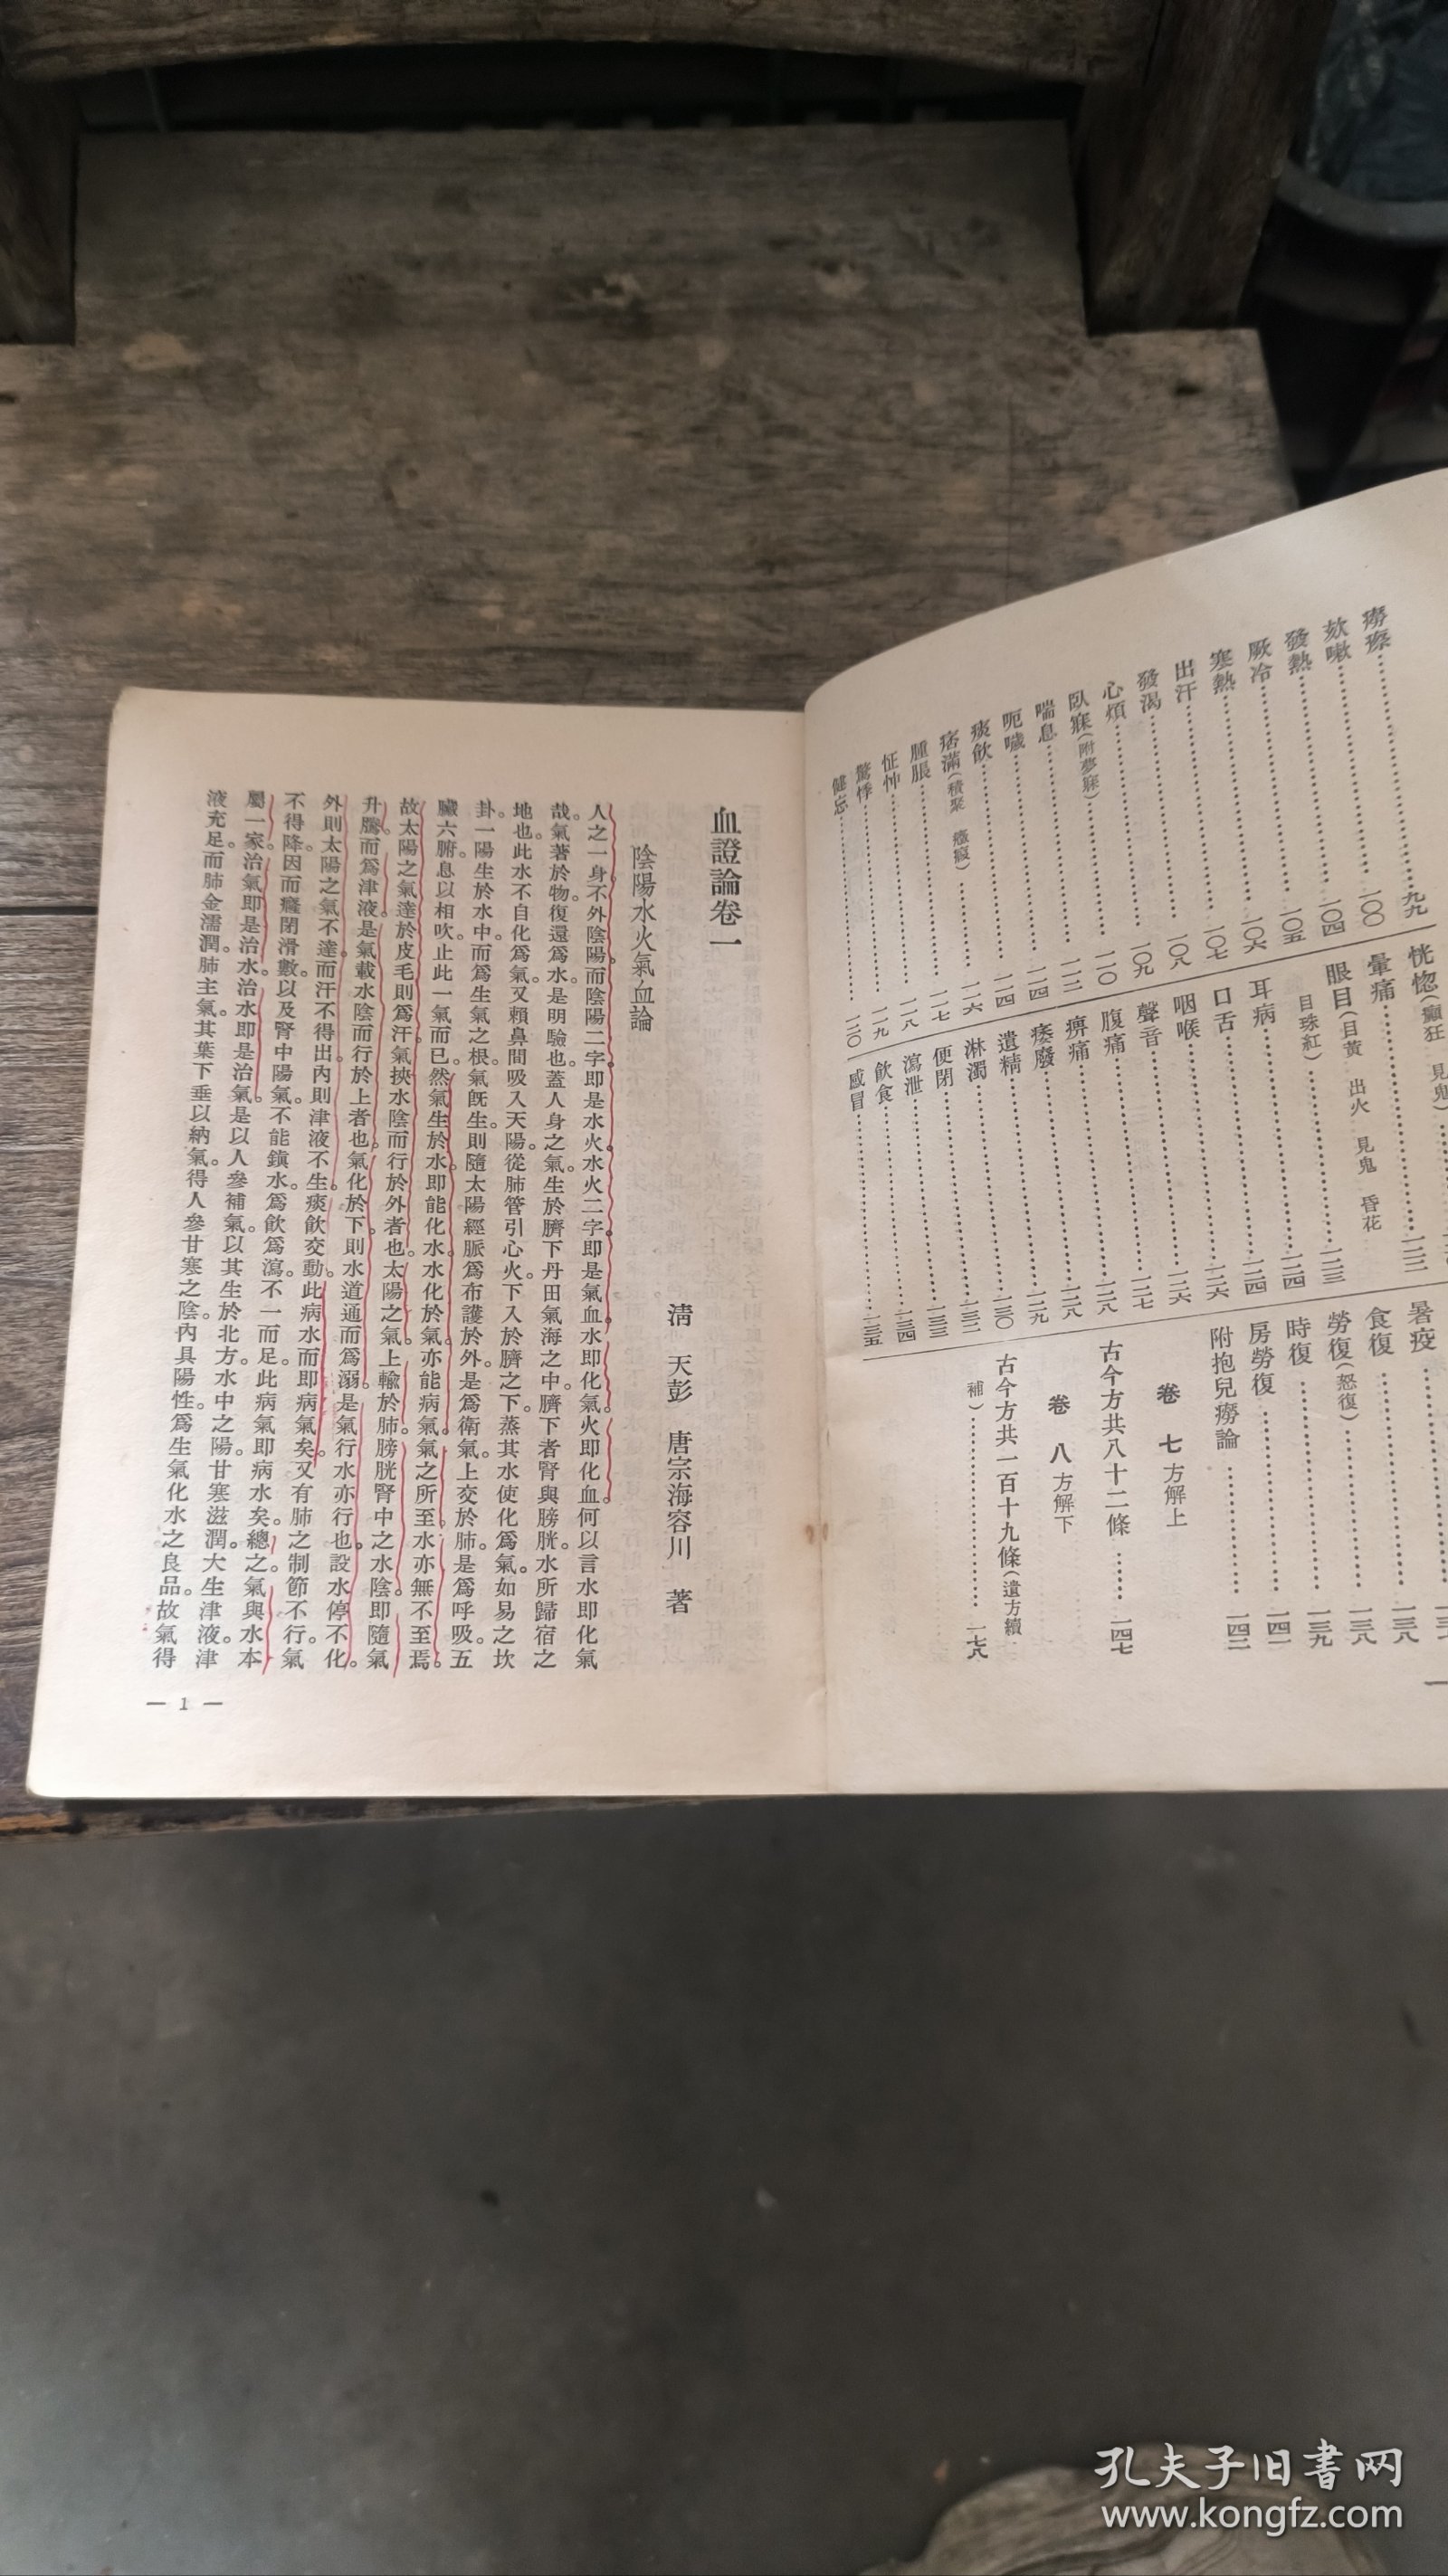 癆瘵……九九
欬嗽……一〇〇
發熱……一〇四
厥冷……一〇五
寒熱……一〇六
出汗……一〇七
發渴……一〇八
心煩……一〇九
臥寐(附夢寐)……一一〇
喘息……一一二
呃噦……一一四
痰飲……一一四
痞滿(積聚 癥瘕)……一一六
腫脹……一一七
怔忡……一一八
驚悸……一一九
健忘……一二〇
恍惚(癲狂 見鬼)
暈痛……一二二
眼目(目黃 出火 見鬼 昏花
目珠紅)……一二三
耳病……一二四
口舌……一二四
咽喉……一二六
聲音……一二六
腹痛……一二七
痹痛……一二八
痿廢……一二八
遺精……一二九
淋濁……一三〇
便閉……一三二
瀉泄……一三三
飲食……一三四
感冒……一三五
暑疫
食復……一三八
勞復(怒復)……一三八
時復……一三九
房勞復……一四一
附抱兒癆論……一四二
卷 七 方解上
古今方共八十二條……一四七
卷 八 方解下
古今方共一百十九條(遺方續
補)……一七八
血證論卷一
清 天彭 唐宗海容川 著
陰陽水火氣血論
人之一身。不外陰陽。而陰陽二字。即是水火。水火二字。即是氣血。水即化氣。火即化血。何以言水即化氣
哉。氣著於物。復還爲水。是明驗也。蓋人身之氣。生於臍下丹田氣海之中。臍下者腎與膀胱。水所歸宿之
地也。此水不自化爲氣。又賴鼻間吸入天陽。從肺管引心火。下入於臍之下。蒸其水使化爲氣。如易之坎
卦。一陽生於水中。而爲生氣之根。氣旣生。則隨太陽經脈爲布護於外。是爲衛氣。上交於肺。是爲呼吸。五
臟六腑。息以相吹。止此一氣而已。然氣生於水。即能化水。水化於氣。亦能病氣。氣之所至。水亦無不至焉。
故太陽之氣達於皮毛則爲汗。氣挾水陰而行於外者也。太陽之氣。上輸於肺。膀胱腎中之水陰。即隨氣
升騰。而爲津液。是氣載水陰而行於上者也。氣化於下。則水道通而爲溺。是氣行水亦行也。設水停不化。
外則太陽之氣不達。而汗不得出。內則津液不生。痰飲交動。此病水而即病氣矣。又有肺之制節不行。氣
不得降。因而癃閉滑數。以及腎中陽氣。不能鎮水。爲飲爲瀉。不一而足。此病氣即病水矣。總之。氣與水本
屬一家。治氣即是治水。治水即是治氣。是以人參補氣。以其生於北方。水中之陽。甘寒滋潤。大生津液。津
液充足。而肺金濡潤。肺主氣。其葉下垂以納氣。得人參甘寒之陰。內具陽性。爲生氣化水之良品。故氣得
— 1 —
孔夫子旧书网
www.kongfz.com